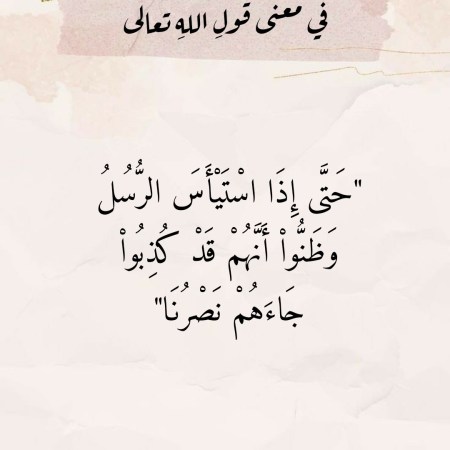 في معنى قولِ اللهِ تعالى
"حَتَّى إِذَا اسْتَيْأَسَ الرُّسُلُ
وَظَنُّواْ أَنَّهُمْ قَدْ كُذِبُواْ
جَاءَهُمْ نَصْرُنَا"